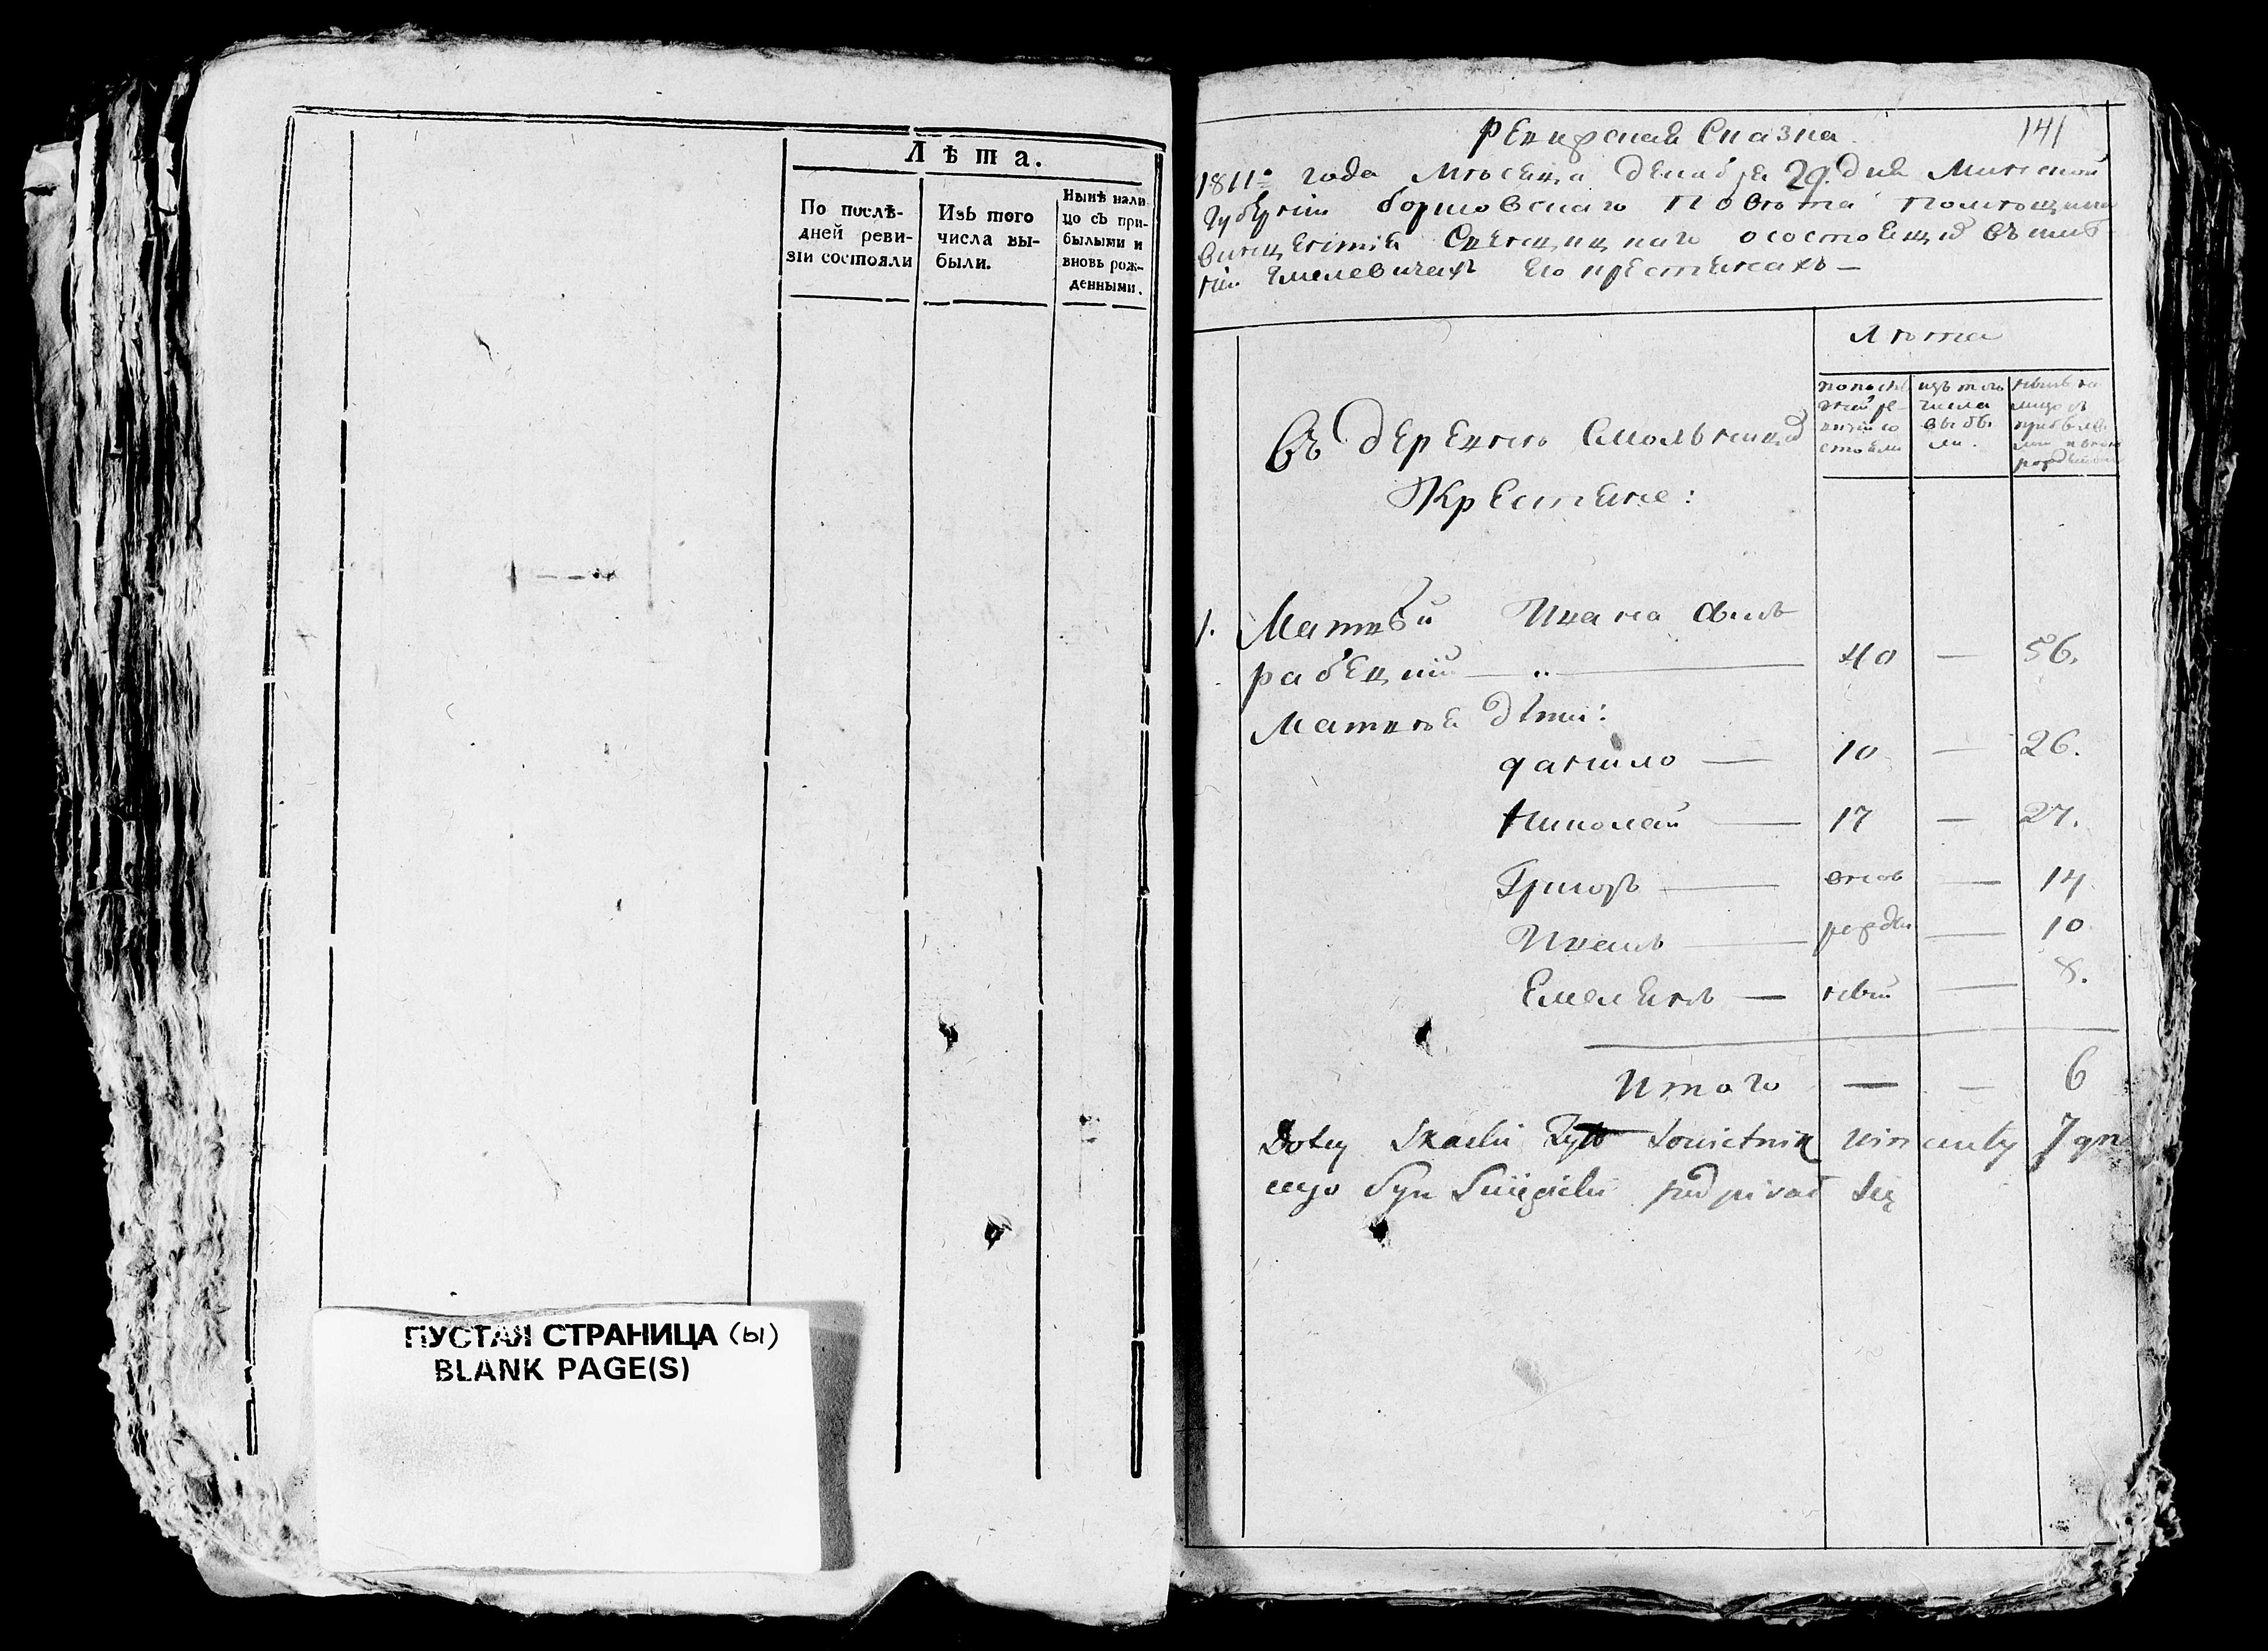 Лѣта.
По послѣ-
дней реви-
зіи состояли
Изъ того
числа вы-
были.
Нынѣ нали
цо съ при-
былыми и
вновь рож-
денными.
ПУСТАЯ СТРАНИЦА (ы)
BLANK PAGE(S)
141
Ревизская Сказка
1811го года Мѣсеца декабря 29. дня Минской
Губерніи борисовскаго Повѣта помѣщика
о состоящихъ въ
его крестянахъ —
Лѣта
попослѣ
дней ре-
визіи со
стояли
изъ того
числа
выбы
ли.
нынѣ на
лицо съ
прибылы
ми
Въ деревнѣ
Крестяне:
1. Матвѣй Ивана сынъ
40 — 56.
Матвѣя дѣти:
данило — 10 — 26.
Николай — 17 — 27.
Григоръ — внов — 14
Иванъ — рожде — 10
Емелянъ — ный — 8.
Итого — — 6
Do tey Skaski Sowietnik Wincenty
cego Syn podpisał się